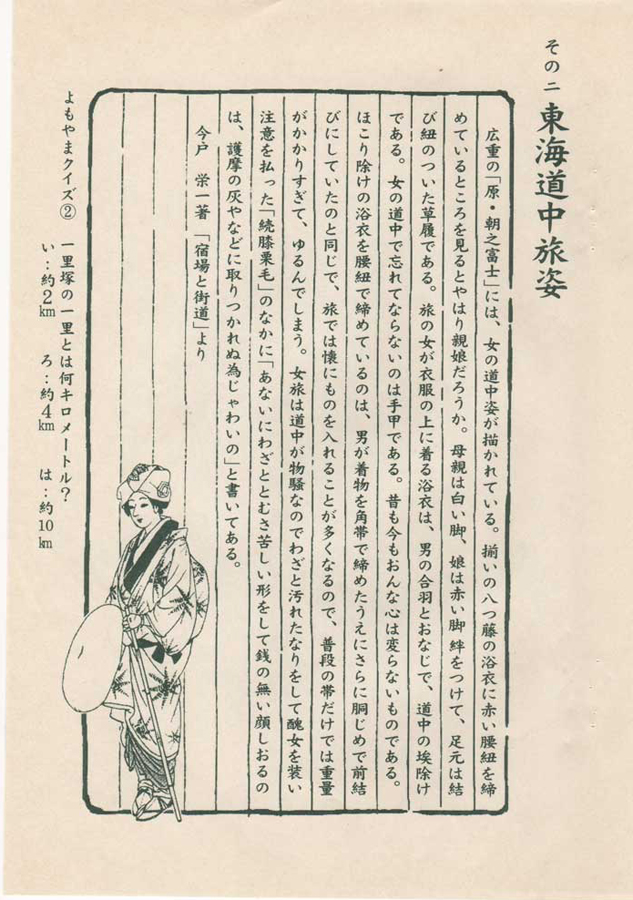 その二 東海道中旅姿
広重の「原・朝之富士」には、女の道中姿が描かれている。揃いの八つ藤の浴衣に赤い腰紐を締
めているところを見るとやはり親娘だろうか。母親は白い脚、娘は赤い脚絆をつけて、足元は結
び紐のついた草履である。旅の女が衣服の上に着る浴衣は、男の合羽とおなじで、道中の埃除け
である。女の道中で忘れてならないのは手甲である。昔も今もおんな心は変らないものである。
ほこり除けの浴衣を腰紐で締めているのは、男が着物を角帯で締めたうえにさらに胴じめで前結
びにしていたのと同じで、旅では懐にものを入れることが多くなるので、普段の帯だけでは重量
がかかりすぎて、ゆるんでしまう。女旅は道中が物騒なのでわざと汚れたなりをして醜女を装い
注意を払った「続膝栗毛」のなかに「あないにわざととむさ苦しい形をして銭の無い顔しおるの
は、護摩の灰やなどに取りつかれぬ為じゃわいの」と書いてある。
今戸 栄一著 「宿場と街道」より
よもやまクイズ② 一里塚の一里とは何キロメートル？
い：約2km ろ：約4km は：約10km